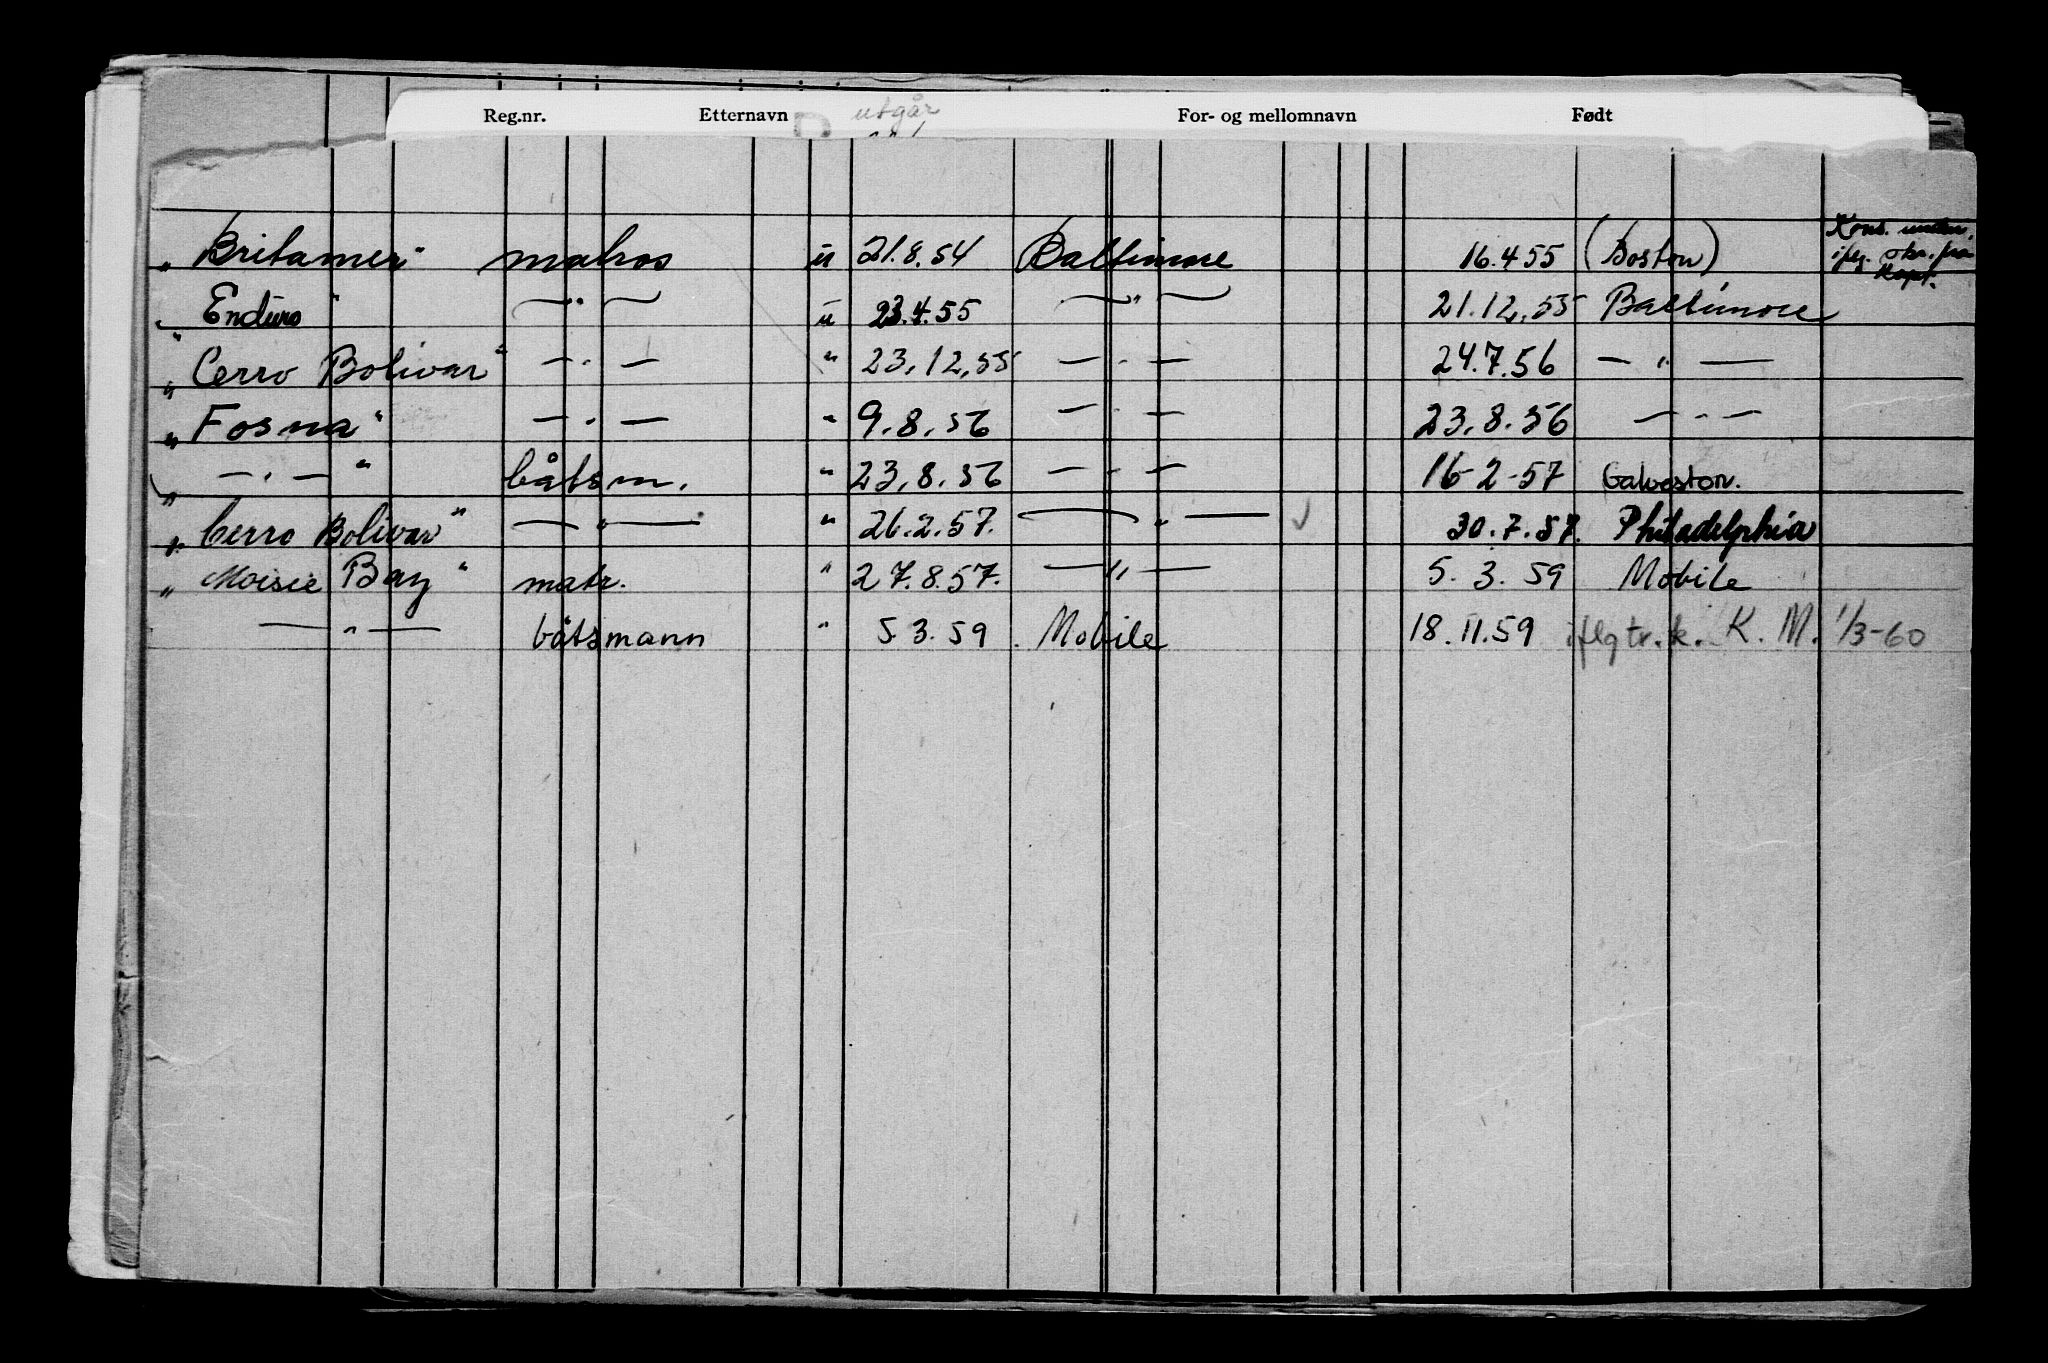 Reg.nr. Etternavn utgår For- og mellomnavn Født
"Britamer" matros u 21.8.54 Baltimore 16.4.55 (Boston) Kons. unden, ifлg. skr. fra Kapt.
"Enduro" —"— u 23.4.55 —"— 21.12.55 Baltimore
"Cerro Bolivar" —"— " 23.12.55 —"— 24.7.56 —"—
"Fosna" —"— " 9.8.56 —"— 23.8.56 —"—
"—"—" båtsm. " 23.8.56 —"— 16-2-57 Galveston.
"Cerro Bolivar" —"— " 26.2.57. —"— 30.7.57. Philadelphia
"Moisie Bay" matr. " 27.8.57. —"— 5.3.59 Mobile
—"— båtsmann " 5.3.59. Mobile 18.11.59 iflg tr.k. K.M. 1/3-60